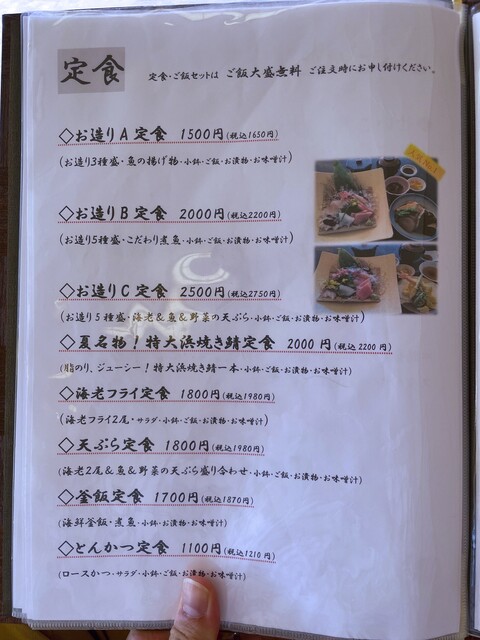 定食
定食・ご飯セットは ご飯大盛無料 ご注文時にお申し付けください。
◇お造りA定食 1500円(税込1650円)
(お造り3種盛・魚の揚げ物・小鉢・ご飯・お漬物・お味噌汁)
人気No.1
◇お造りB定食 2000円(税込2200円)
(お造り5種盛・こだわり煮魚・小鉢・ご飯・お漬物・お味噌汁)
◇お造りC定食 2500円(税込2750円)
(お造り5種盛・海老&魚&野菜の天ぷら・小鉢・ご飯・お漬物・お味噌汁)
◇夏名物!特大浜焼き鯖定食 2000円(税込2200円)
(脂のり、ジューシー!特大浜焼き鯖一本・小鉢・ご飯・お漬物・お味噌汁)
◇海老フライ定食 1800円(税込1980円)
(海老フライ2尾・サラダ・小鉢・ご飯・お漬物・お味噌汁)
◇天ぷら定食 1800円(税込1980円)
(海老2尾&魚&野菜の天ぷら盛り合わせ・小鉢・ご飯・お漬物・お味噌汁)
◇釜飯定食 1700円(税込1870円)
(海鮮釜飯・煮魚・小鉢・お漬物・お味噌汁)
◇とんかつ定食 1100円(税込1210円)
(ロースかつ・サラダ・小鉢・ご飯・お漬物・お味噌汁)